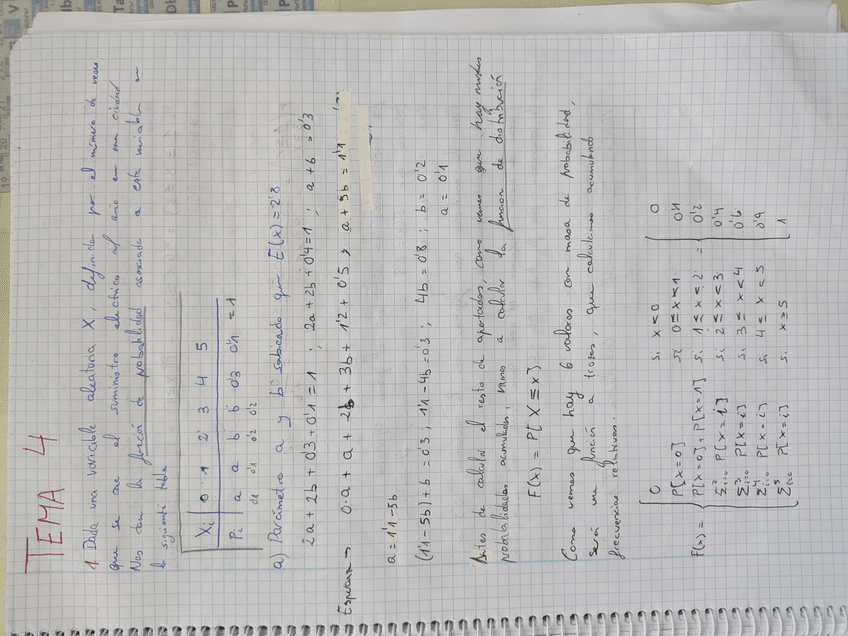 TEMA 4
1 Dada una variable aleatoria X, definida por el número de veces
que se cae el suministro eléctrico al año en una ciudad
Nos dan la función de probabilidad asociada a esta variable en
la siguiente tabla
Xi 0 1 2 3 4 5
Pi a a b b 0'3 0'1 = 1
0'1 0'1 0'2 0'2
a) Parámetro a y b sabiendo que E(x) = 2'8
2a + 2b + 0'3 + 0'1 = 1 ; 2a + 2b + 0'4 = 1 ; a + b = 0'3
Esperanza → 0·a + a + 2b + 3b + 1'2 + 0'5 , a + 5b = 1'1
a = 1'1 - 5b
(1'1 - 5b) + b = 0'3 ; 1'1 - 4b = 0'3 ; 4b = 0'8 ; b = 0'2
a = 0'1
Antes de calcular el resto de apartados, como vemos que hay muchas
probabilidades acumuladas, vamos a calcular la función de distribución
F(x) = P[X ≤ x]
Como vemos que hay 6 valores con masa de probabilidad,
será una función a trozos, que calculamos acumulando
frecuencias relativas.
0 si x < 0 0
P[x=0] si 0 ≤ x < 1 0'1
F(x) = P[x=0] + P[x=1] si 1 ≤ x < 2 = 0'2
Σ²i=0 P[x=i] si 2 ≤ x < 3 0'4
Σ³i=0 P[x=i] si 3 ≤ x < 4 0'6
Σ⁴i=0 P[x=i] si 4 ≤ x < 5 0'9
Σ⁵i=0 P[x=i] si x ≥ 5 1